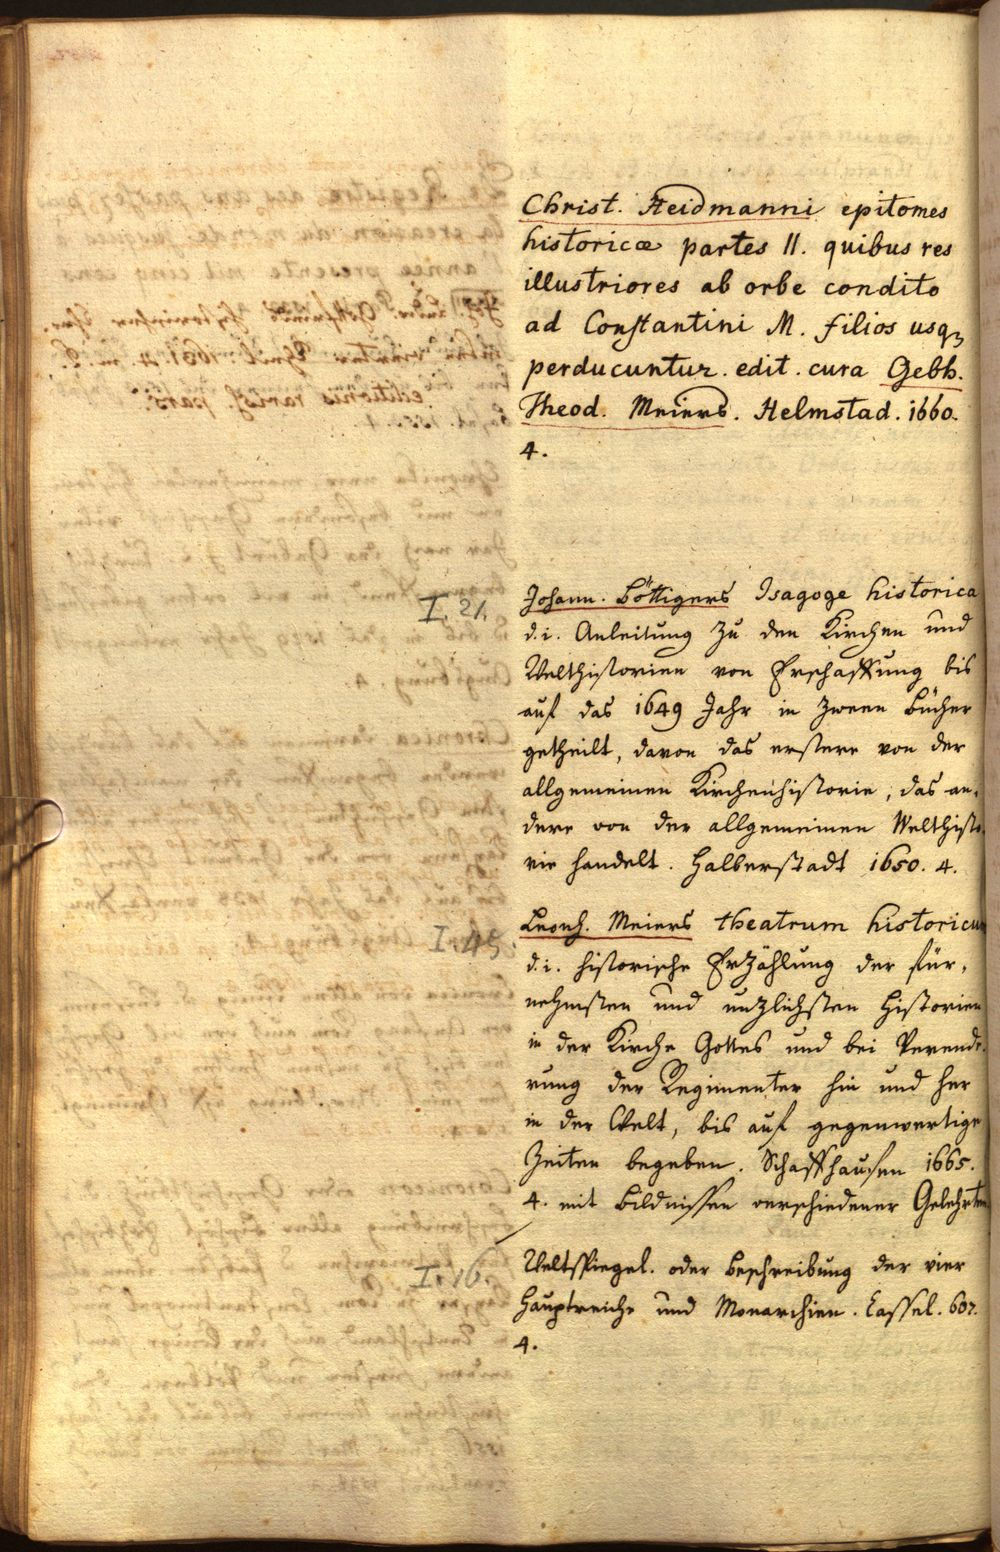 Christ. Heidmanni epitomes
historicæ partes II. quibus res
illustriores ab orbe condito
ad Constantini M. filios usqꝫ
perducuntur. edit. cura Gebh.
Theod. Meiers. Helmstad. 1660.
4.
I. 21.
Johann. Böttigers Isagoge historica
d. i. Anleitung zu den Kirchen und
Welthistorien von Erschaffung bis
auf das 1649 Jahr in zween Bücher
getheilt, davon das erstere von der
allgemeinen Kirchenhistorie, das an-
dere von der allgemeinen Welthisto-
rie handelt. Halberstadt 1650. 4.
I. 45.
Leonh. Meiers theatrum historicum
d. i. historische Erzählung der für-
nehmsten und nuzlichsten Historien
in der Kirche Gottes und bei Verende-
rung der Regimenter hin und her
in der Welt, bis auf gegenwertige
Zeiten begeben. Schaffhausen 1665.
4. mit Bildnissen verschiedener Gelehrten
I. 16.
Weltspiegel. oder Beschreibung der vier
Hauptreiche und Monarchien. Cassel. 607.
4.